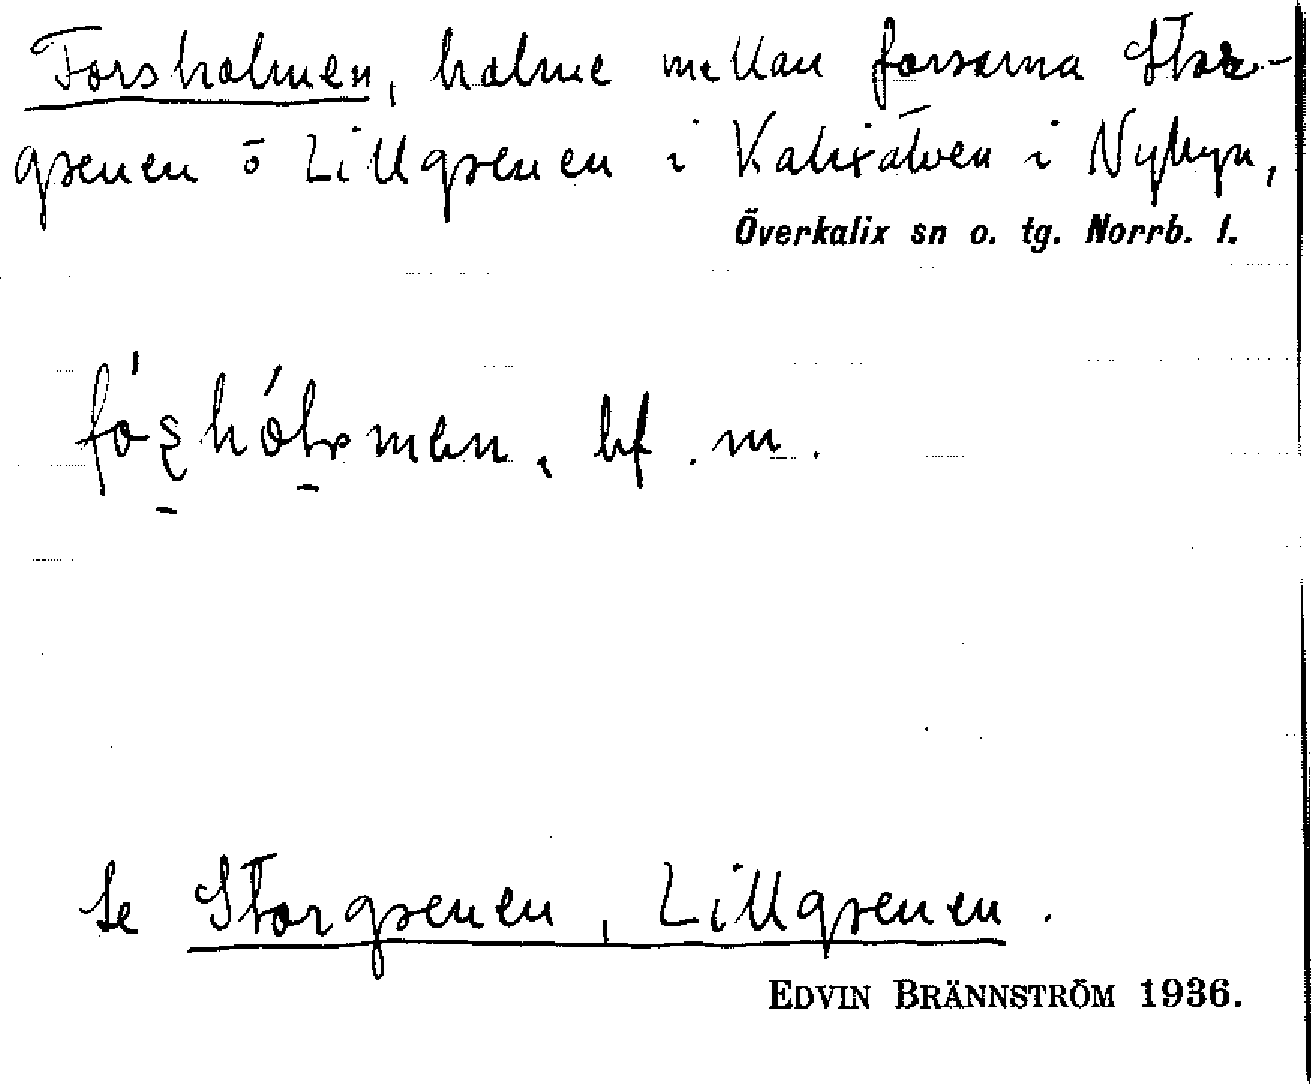 Forsholmen, holme mellan forsarna Stor-
grenen o Lillgrenen i Kalixälven i Nybyn,
Överkalix sn o. tg. Norrb. l.
bf. m.
se Storgrenen, Lillgrenen.
EDVIN BRÄNNSTRÖM 1936.